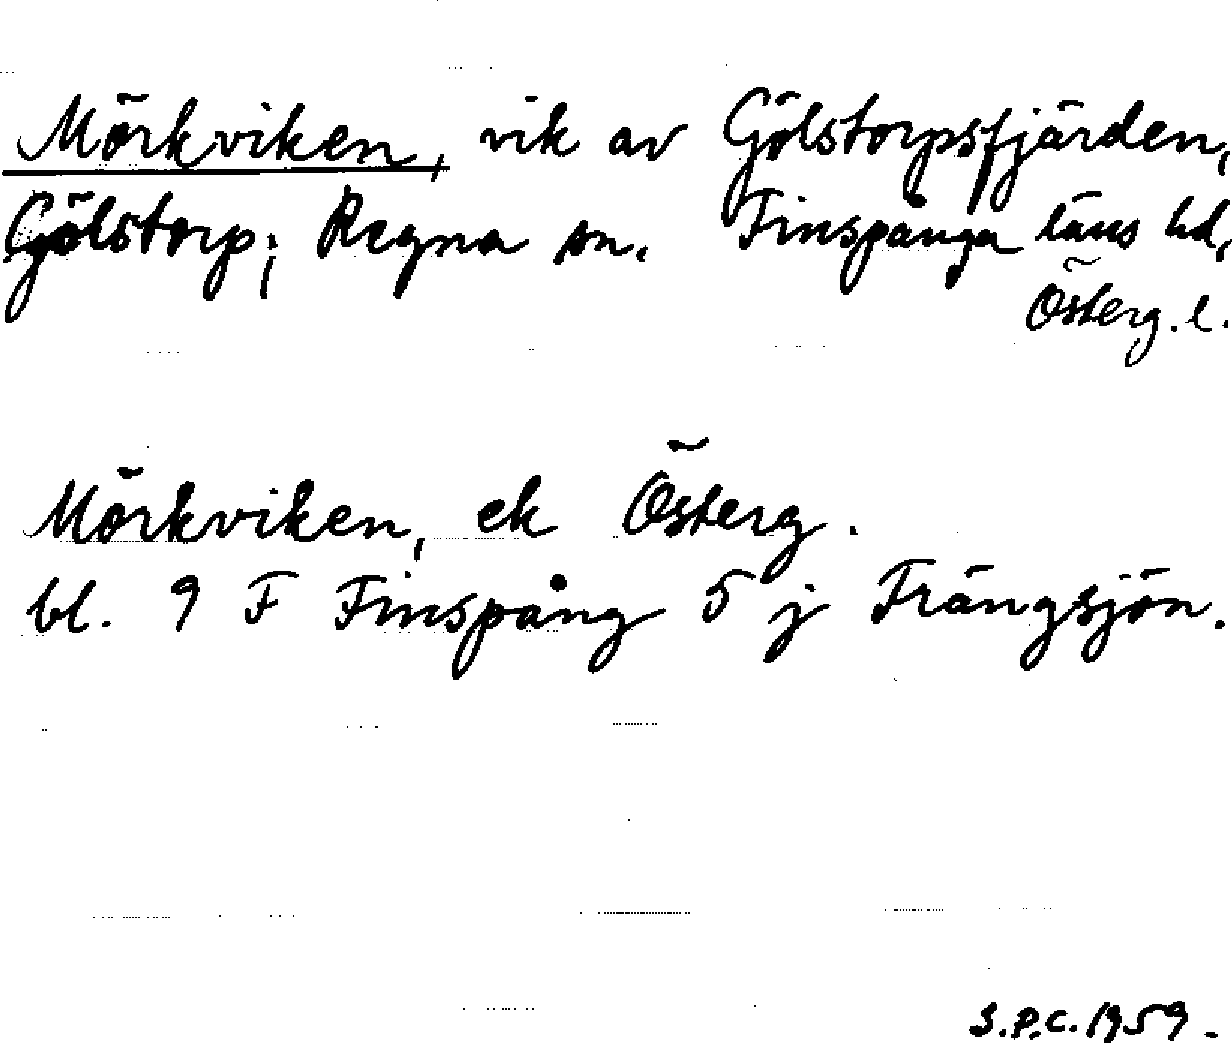 Mörkviken, vik av Gölstorpsfjärden,
Gölstorp; Regna sn. Finspånga läns hd,
Österg. l.
Mörkviken, ek Österg.
bl. 9 F Finspång 5 j Trängsjön.
S.P.C. 1959.